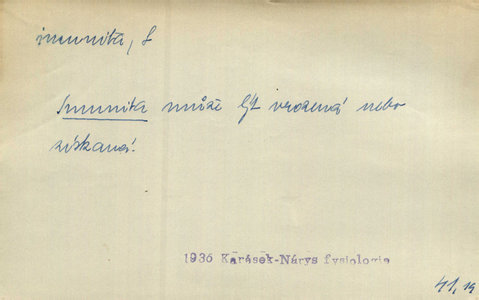 imunita, f
Imunita může být vrozená nebo
získaná.
1936 Karásek-Nárys fysiologie
41,19